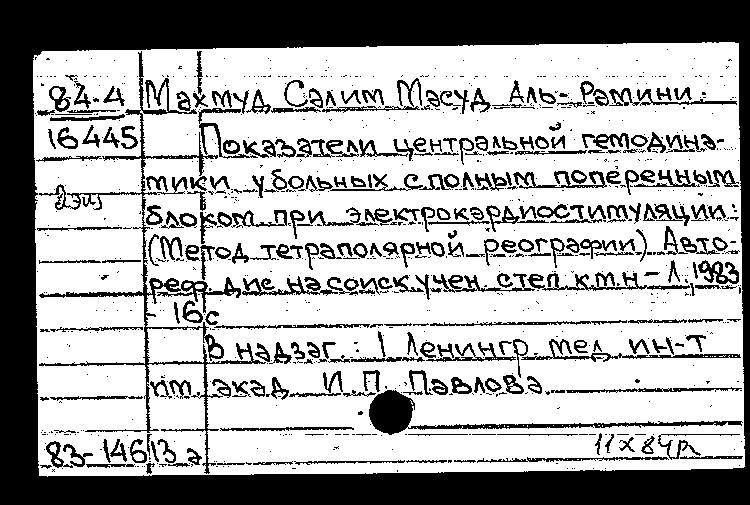 84-4 Махмуд Салим Масуд Аль-Рамини.
16445 Показатели центральной гемодина-
тики у больных с полным поперенным
2 экз
блоком при электрокардиостимуляции:
(Метод тетраполярной реографии) Авто-
реф. дис. на соиск. учен. степ к.м.н - Л., 1983
- 16с
В надзаг.: 1 Ленингр. мед. ин-т
им. акад И.П. Павлова.
83-14613а 11 X 84р